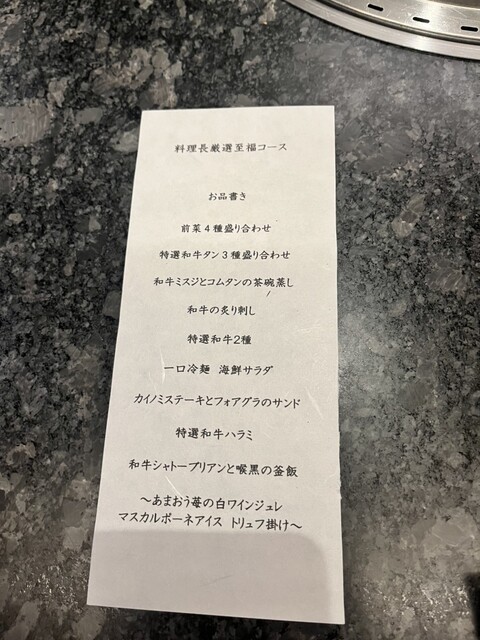 料理長厳選至福コース
お品書き
前菜４種盛り合わせ
特選和牛タン３種盛り合わせ
和牛ミスジとコムタンの茶碗蒸し
和牛の炙り刺し
特選和牛2種
一口冷麺 海鮮サラダ
カイノミステーキとフォアグラのサンド
特選和牛ハラミ
和牛シャトーブリアンと喉黒の釜飯
～あまおう苺の白ワインジュレ
マスカルポーネアイス トリュフ掛け～